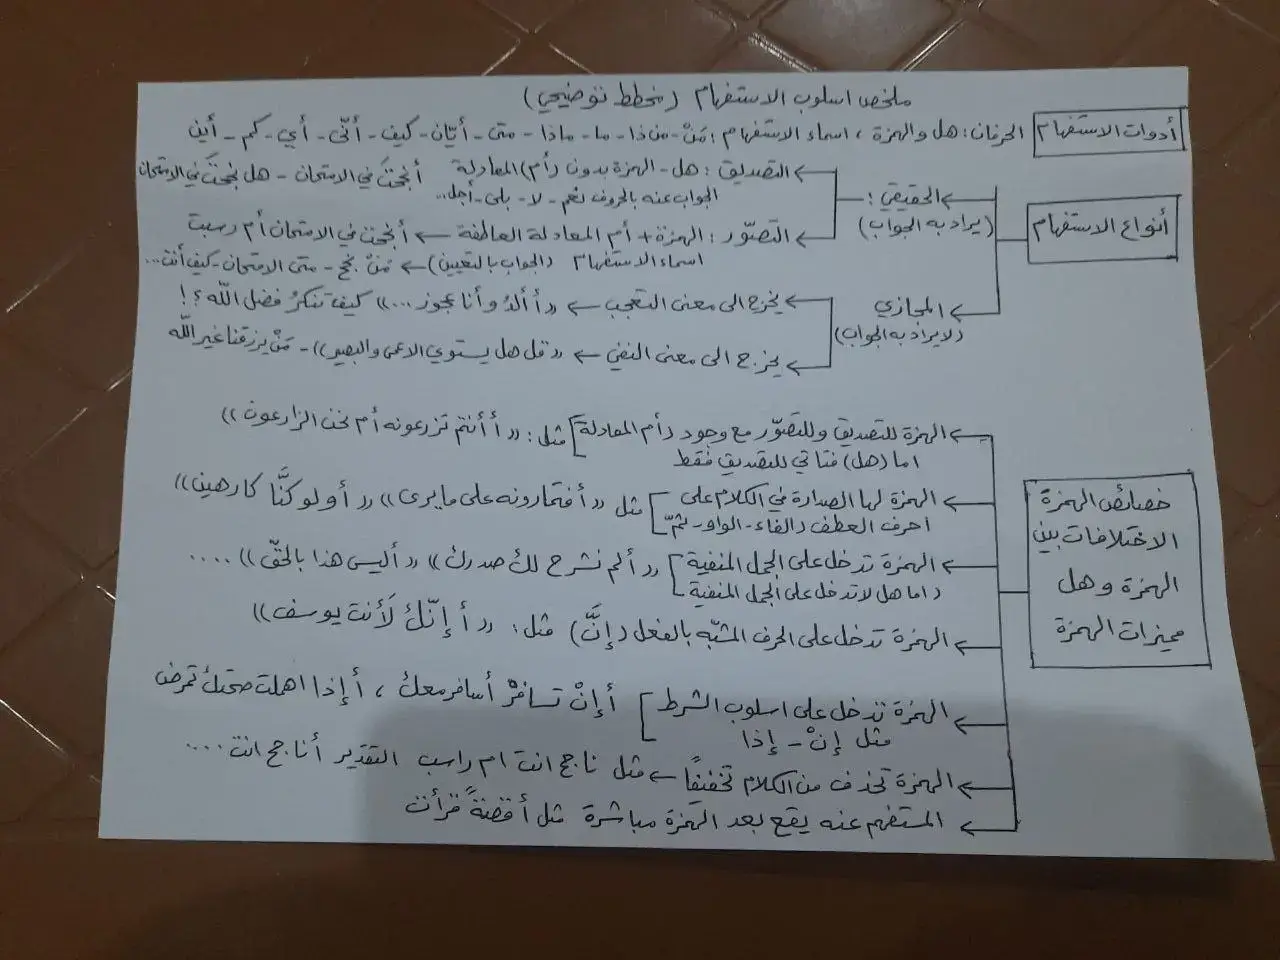 ملخص اسلوب الاستفهام (مخطط توضيحي)
أدوات الاستفهام
الحرفان: هل والهمزة ، اسماء الاستفهام : مَنْ - من ذا - ما - ماذا - متى - أيّان - كيف - أنّى - أي - كم - أين
أنواع الاستفهام
الحقيقي :
(يراد به الجواب)
التصديق : هل - الهمزة بدون (أم) المعادلة أنجحتَ في الامتحان - هل نجحتَ في الامتحان
الجواب عنه بالحروف نعم - لا - بلى - أجل...
التصوّر : الهمزة + أم المعادلة العاطفة ← أنجحت في الامتحان أم رسبت
اسماء الاستفهام (الجواب بالتعيين) ← مَنْ نجح - متى الامتحان - كيف أنت...
المجازي
(لا يراد به الجواب)
يخرج الى معنى التعجب ← ((أألدُ وأنا عجوز...)) كيف تنكرُ فضل الله؟!
يخرج الى معنى النفي ← ((قل هل يستوي الاعمى والبصير)) - مَنْ يرزقنا غير الله
خصائص الهمزة
الاختلافات بين
الهمزة وهل
مميزات الهمزة
الهمزة للتصديق وللتصوّر مع وجود (أم المعادلة) مثل : ((أأنتم تزرعونه أم نحن الزارعون))
اما (هل) فتأتي للتصديق فقط
الهمزة لها الصدارة في الكلام على مثل ((أفتمارونه على ما يرى)) ((أولو كنَّا كارهين))
احرف العطف (الفاء - الواو - ثمّ)
الهمزة تدخل على الجمل المنفية ((ألم نشرح لك صدرك)) ((أليس هذا بالحقّ)) ....
(اما هل لا تدخل على الجمل المنفية
الهمزة تدخل على الحرف المشبّه بالفعل (إنَّ) مثل : ((أإنّكَ لَأنت يوسف))
الهمزة تدخل على اسلوب الشرط أإنْ تسافرْ أسافر معك ، أإذا اهملت صحتك تمرض
مثل إنْ - إذا
الهمزة تحذف من الكلام تخفيفًا ← مثل ناجح انت ام راسب التقدير أناجح انت ....
المستفهم عنه يقع بعد الهمزة مباشرة مثل أقصةً قرأت